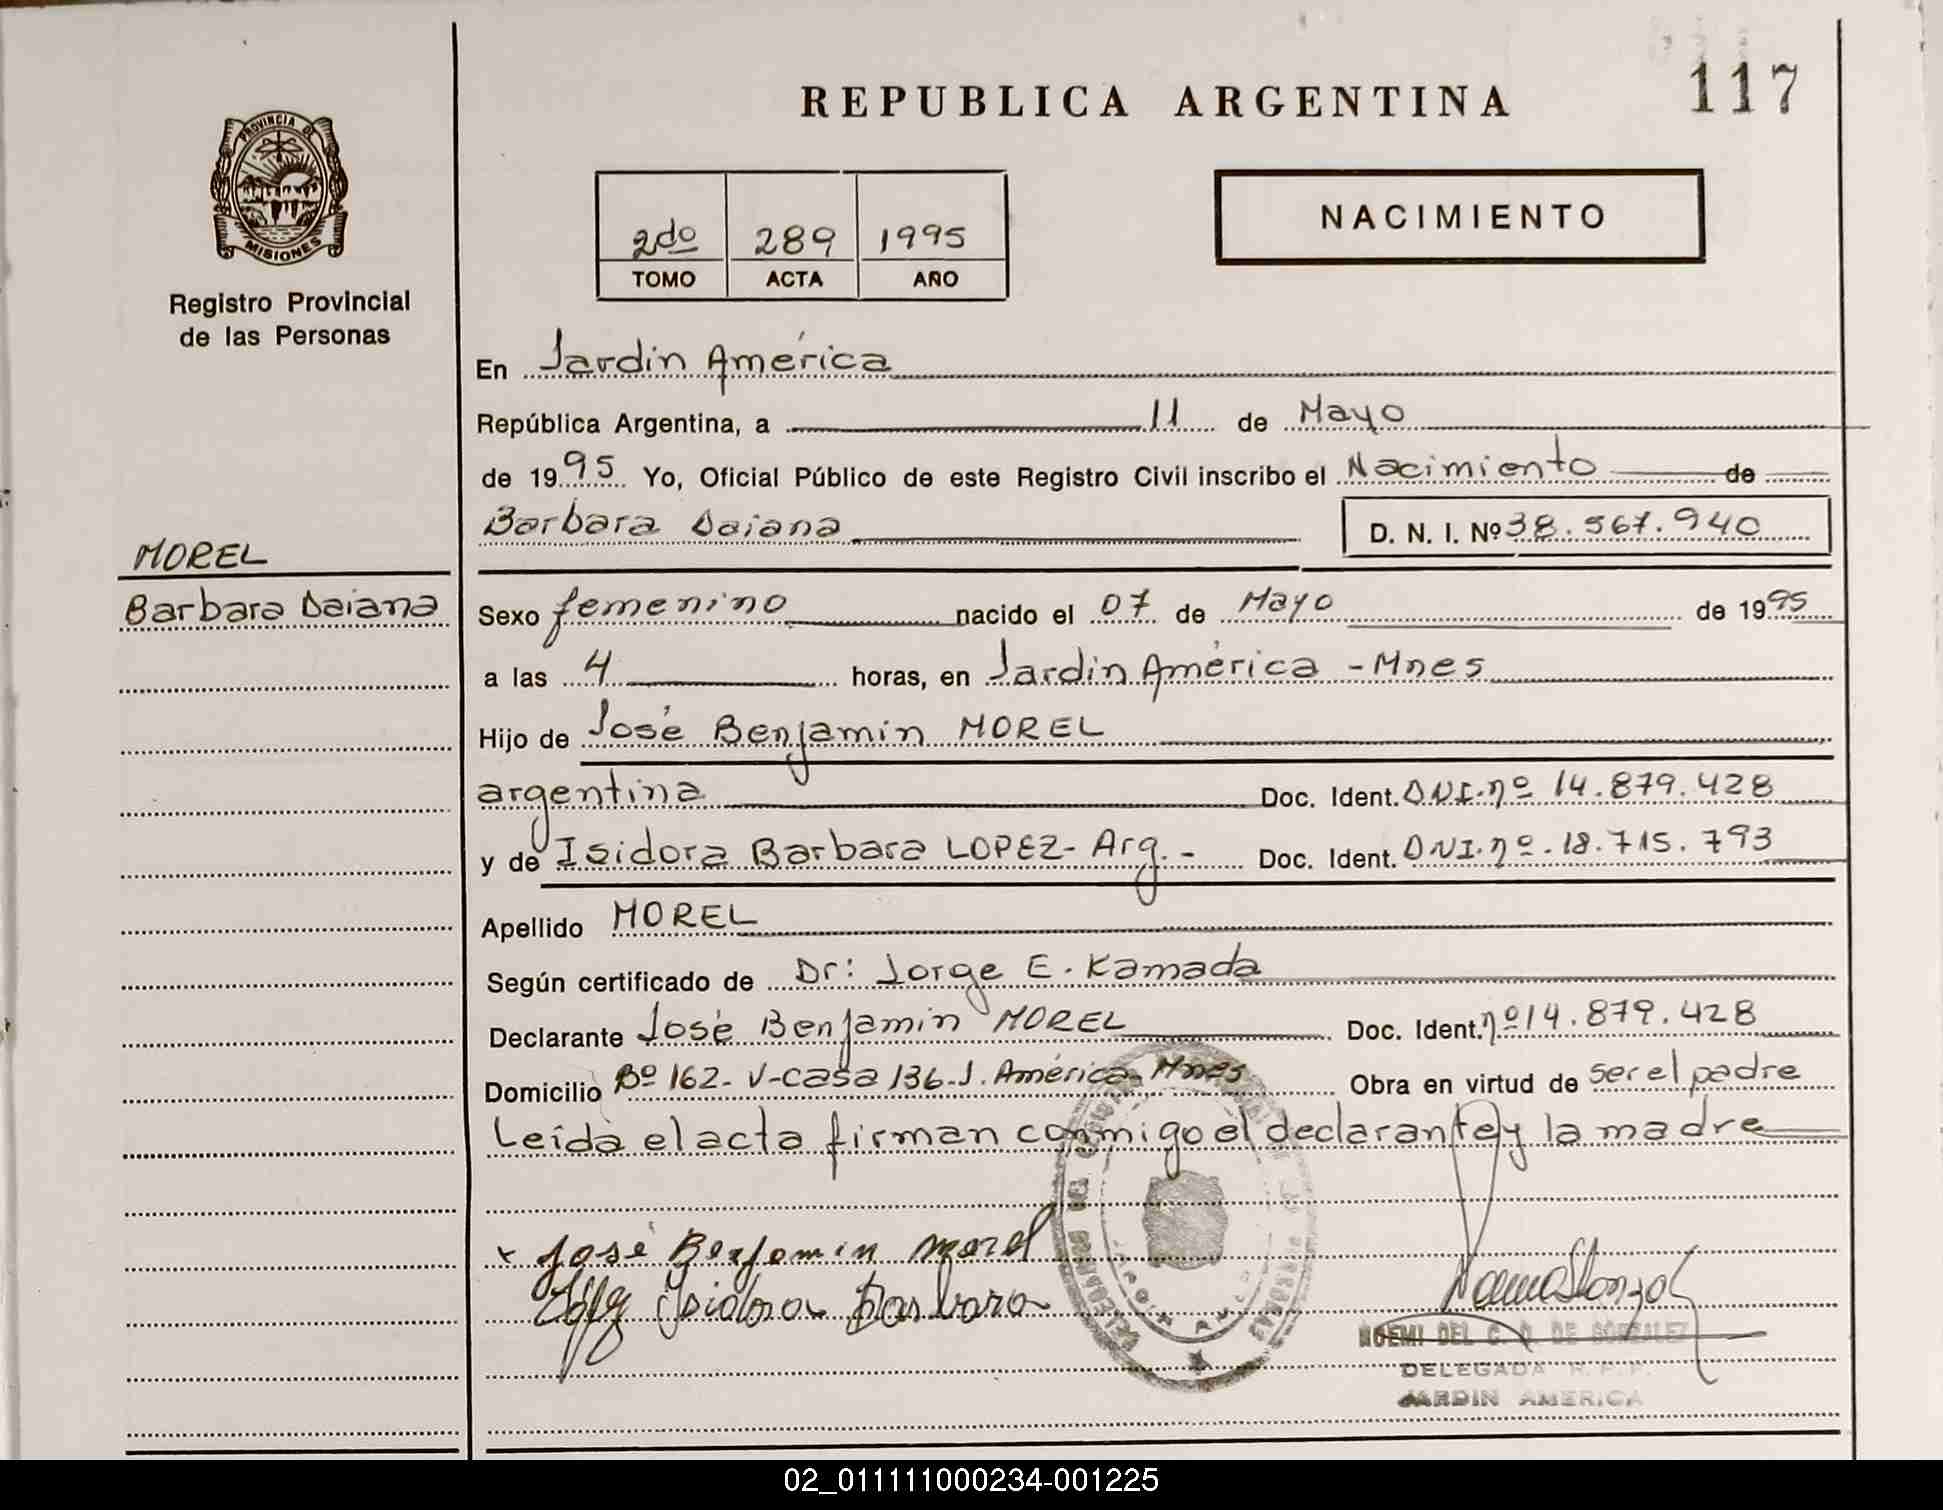 117
REPUBLICA ARGENTINA
PROVINCIA DE
MISIONES
Registro Provincial
de las Personas
NACIMIENTO
2do 289 1995
TOMO ACTA AÑO
En Jardin América
República Argentina, a 11 de Mayo
de 1995 Yo, Oficial Público de este Registro Civil inscribo el Nacimiento de
Barbara Daiana D. N. I. Nº 38.567.940
MOREL
Barbara Daiana
Sexo femenino nacido el 07 de Mayo de 1995
a las 4 horas, en Jardin América - Mnes
Hijo de José Benjamin MOREL
argentina Doc. Ident. D.N.I. nº 14.879.428
y de Isidora Barbara LOPEZ - Arg. - Doc. Ident. D.N.I. nº. 18.715.793
Apellido MOREL
Según certificado de Dr: Jorge E. Kamada
Declarante José Benjamin MOREL Doc. Ident. nº 14.879.428
Domicilio Bº 162- V-casa 136-J. América- Mnes Obra en virtud de ser el padre
Leída el acta firman conmigo el declarante y la madre
x José Benjamin Morel
López Isidora Barbara
NOEMI DEL C. D. DE GONZALEZ
DELEGADA R.P.P.
JARDIN AMERICA
02_011111000234-001225